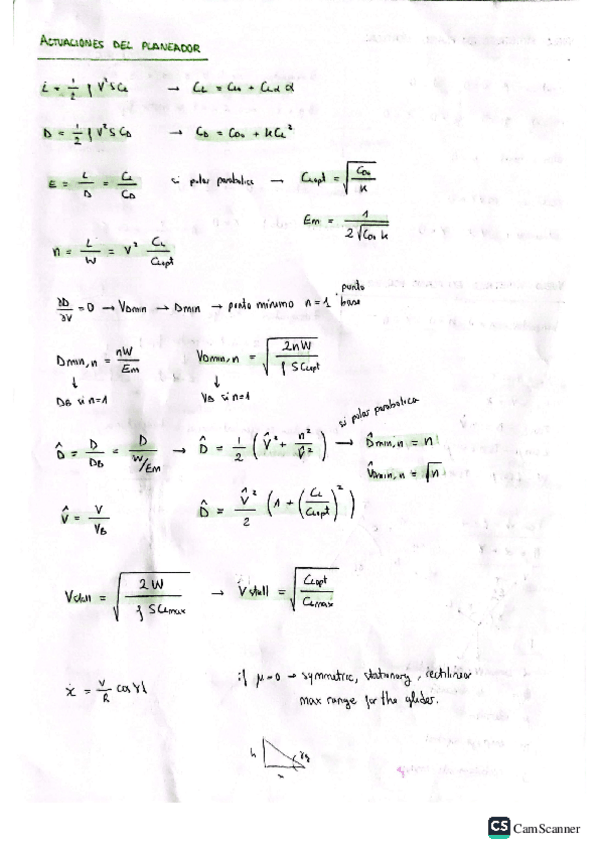 ACTUACIONES DEL PLANEADOR
L = 1/2 ρ V² S CL → CL = CL0 + CLα α
D = 1/2 ρ V² S CD → CD = CD0 + k CL²
E = L/D = CL/CD si polar parabolica → CLopt = √(CD0/k)
Em = 1/(2√(CD0 k))
n = L/W = V̂² CL/CLopt
∂D/∂V = 0 → VDmin → Dmin → punto mínimo n = 1 punto base
Dmin,n = nW/Em VDmin,n = √(2nW/(ρ S CLopt))
↓ ↓
DB si n=1 VB si n=1
D̂ = D/DB = D/(W/Em) → D̂ = 1/2 (V̂² + n²/V̂²) si polar parabolica → D̂min,n = n
V̂Dmin,n = √n
V̂ = V/VB D̂ = V̂²/2 (1 + (CL/CLopt)²)
Vstall = √(2W/(ρ S CLmax)) → V̂stall = √(CLopt/CLmax)
ẋ = V/R cos γ if μ=0 → symmetric, stationary, rectilinear
max range for the glider.
h
x
CS CamScanner